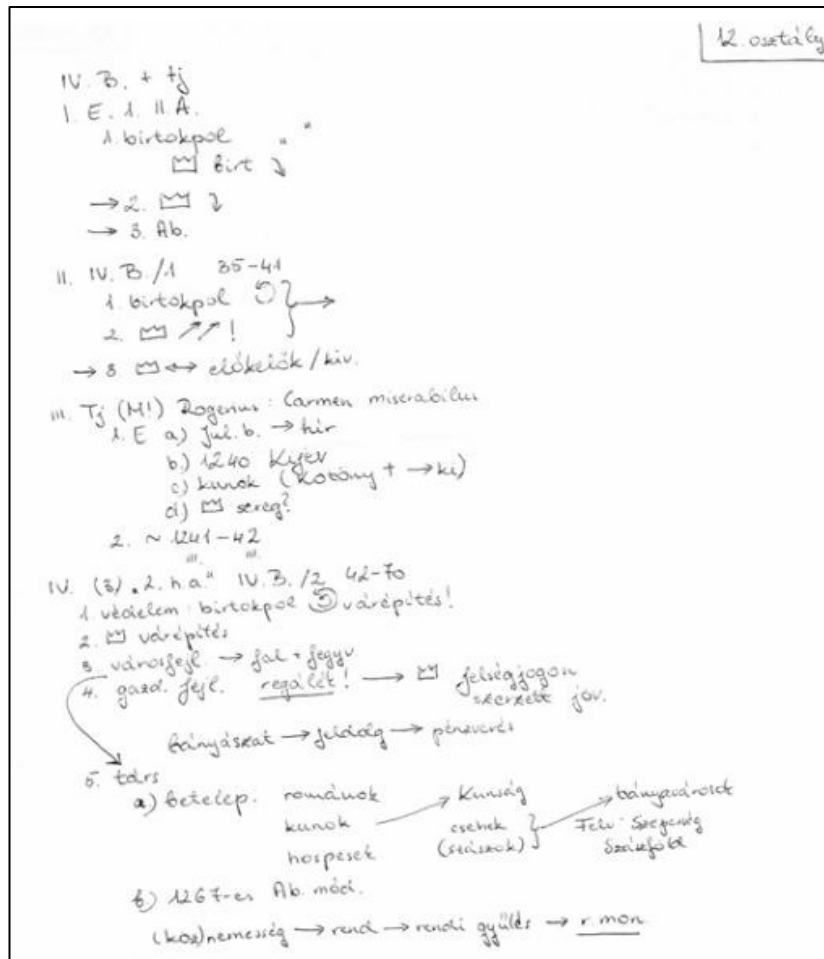 12. osztály
IV. B. + tj
I. E. 1. II A.
1. birtokpol „ “
birt ↘
→ 2. ↘
→ 3. Ab.
II. IV. B./1 35-41
1. birtokpol
2. ↗↗ !
→ 3. ↔ előkelők / kiv.
III. Tj (M!) Rogerius: Carmen miserabilus
1. E a) Jul. b. → hír
b.) 1240 Kijev
c) kunok (Kötöny + → ki)
d) sereg?
2. ~ 1241-42
III. III.
IV. (3) „2. h. a." IV. B./2 42-70
1. védelem: birtokpol várépítés!
2. várépítés
3. városfejl. → fal + fegyv
4. gazd. fejl. regálét! → felségjogon
szerzett jöv.
bányászat → feldolg → pénzverés
5. társ
a) betelep. románok Kunság → bányavárosok
kunok → csehek Felv: Szepesség
hospesek (szászok) Szászföld
b) 1267-es Ab. mód.
(köz)nemesség → rend → rendi gyűlés → r. mon.